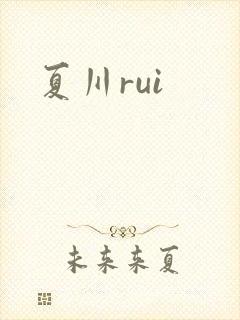 夏川rui
未来来夏